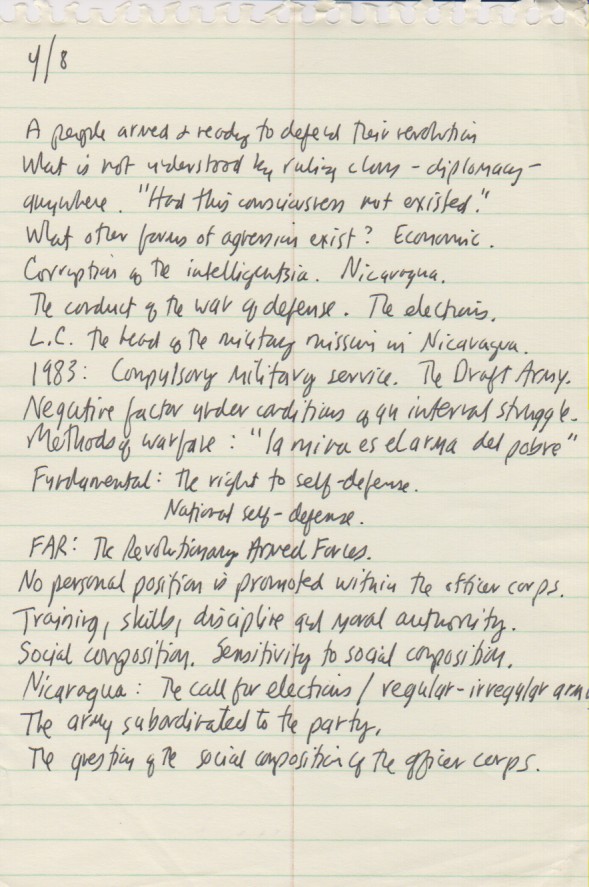 4/8
A people armed & ready to defend their revolution
What is not understood by ruling class - diplomacy -
anywhere. "Had this consciousness not existed."
What other forms of agression exist? Economic.
Corruption of the intelligentsia. Nicaragua.
The conduct of the war of defense. The elections.
L.C. the head of the military mission in Nicaragua.
1983: Compulsory military service. The Draft Army.
Negative factor under conditions of an internal struggle.
Methods of warfare: "la mina es el arma del pobre"
Fundamental: The right to self-defense.
National self-defense.
FAR: The Revolutionary Armed Forces.
No personal position is promoted within the officer corps.
Training, skills, discipline and moral authority.
Social composition. Sensitivity to social composition.
Nicaragua: The call for elections / regular-irregular arm
The army subordinated to the party.
The question of the social composition of the officer corps.